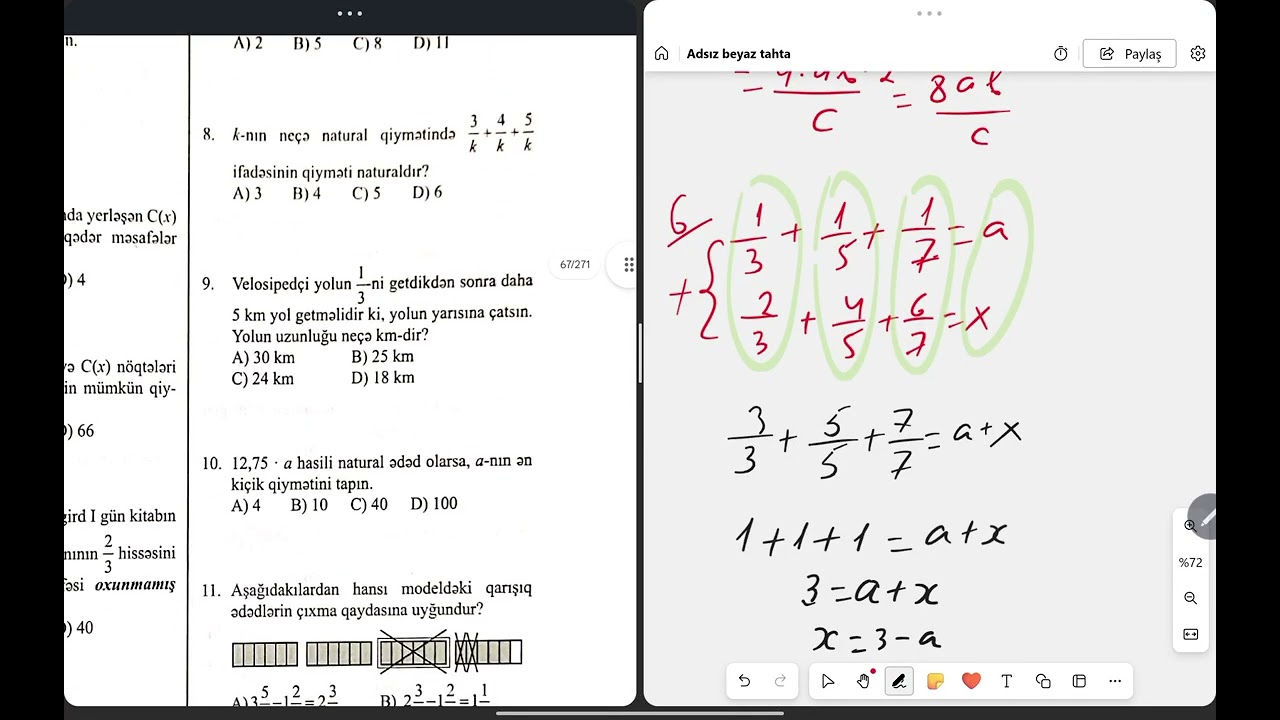 n.
A) 2 B) 5 C) 8 D) 11
8. k-nın neçə natural qiymətində 3/k + 4/k + 5/k
ifadəsinin qiyməti naturaldır?
A) 3 B) 4 C) 5 D) 6
nda yerləşən C(x)
qədər məsafələr
D) 4
9. Velosipedçi yolun 1/3-ni getdikdən sonra daha
5 km yol getməlidir ki, yolun yarısına çatsın.
Yolun uzunluğu neçə km-dir?
A) 30 km B) 25 km
C) 24 km D) 18 km
və C(x) nöqtələri
in mümkün qiy-
D) 66
10. 12,75 · a hasili natural ədəd olarsa, a-nın ən
kiçik qiymətini tapın.
A) 4 B) 10 C) 40 D) 100
gird I gün kitabın
nının 2/3 hissəsini
fəsi oxunmamış
D) 40
11. Aşağıdakılardan hansı modeldəki qarışıq
ədədlərin çıxma qaydasına uyğundur?
A) 3 5 - 1 2 = 2 3 B) 2 3 - 1 2 = 1 1
67/271
Adsız beyaz tahta
Paylaş
= 8ab/c
6
1/3 + 1/5 + 1/7 = a
+ { 2/3 + 4/5 + 6/7 = x
3/3 + 5/5 + 7/7 = a + x
1 + 1 + 1 = a + x
3 = a + x
x = 3 - a
%72
T